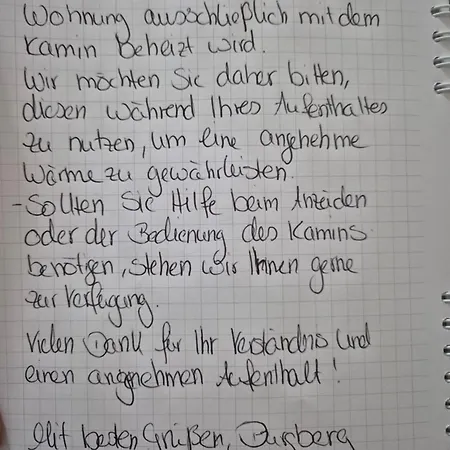 Wohnung ausschließlich mit dem
Kamin Beheizt wird.
Wir möchten Sie daher bitten,
diesen während Ihres Aufenthaltes
zu nutzen, um eine angenehme
Wärme zu gewährleisten.
- Sollten Sie Hilfe beim Anzünden
oder der Bedienung des Kamins
benötigen, stehen wir Ihnen gerne
zur Verfügung.
Vielen Dank für Ihr Verständnis und
einen angenehmen Aufenthalt!
Mit besten Grüßen,